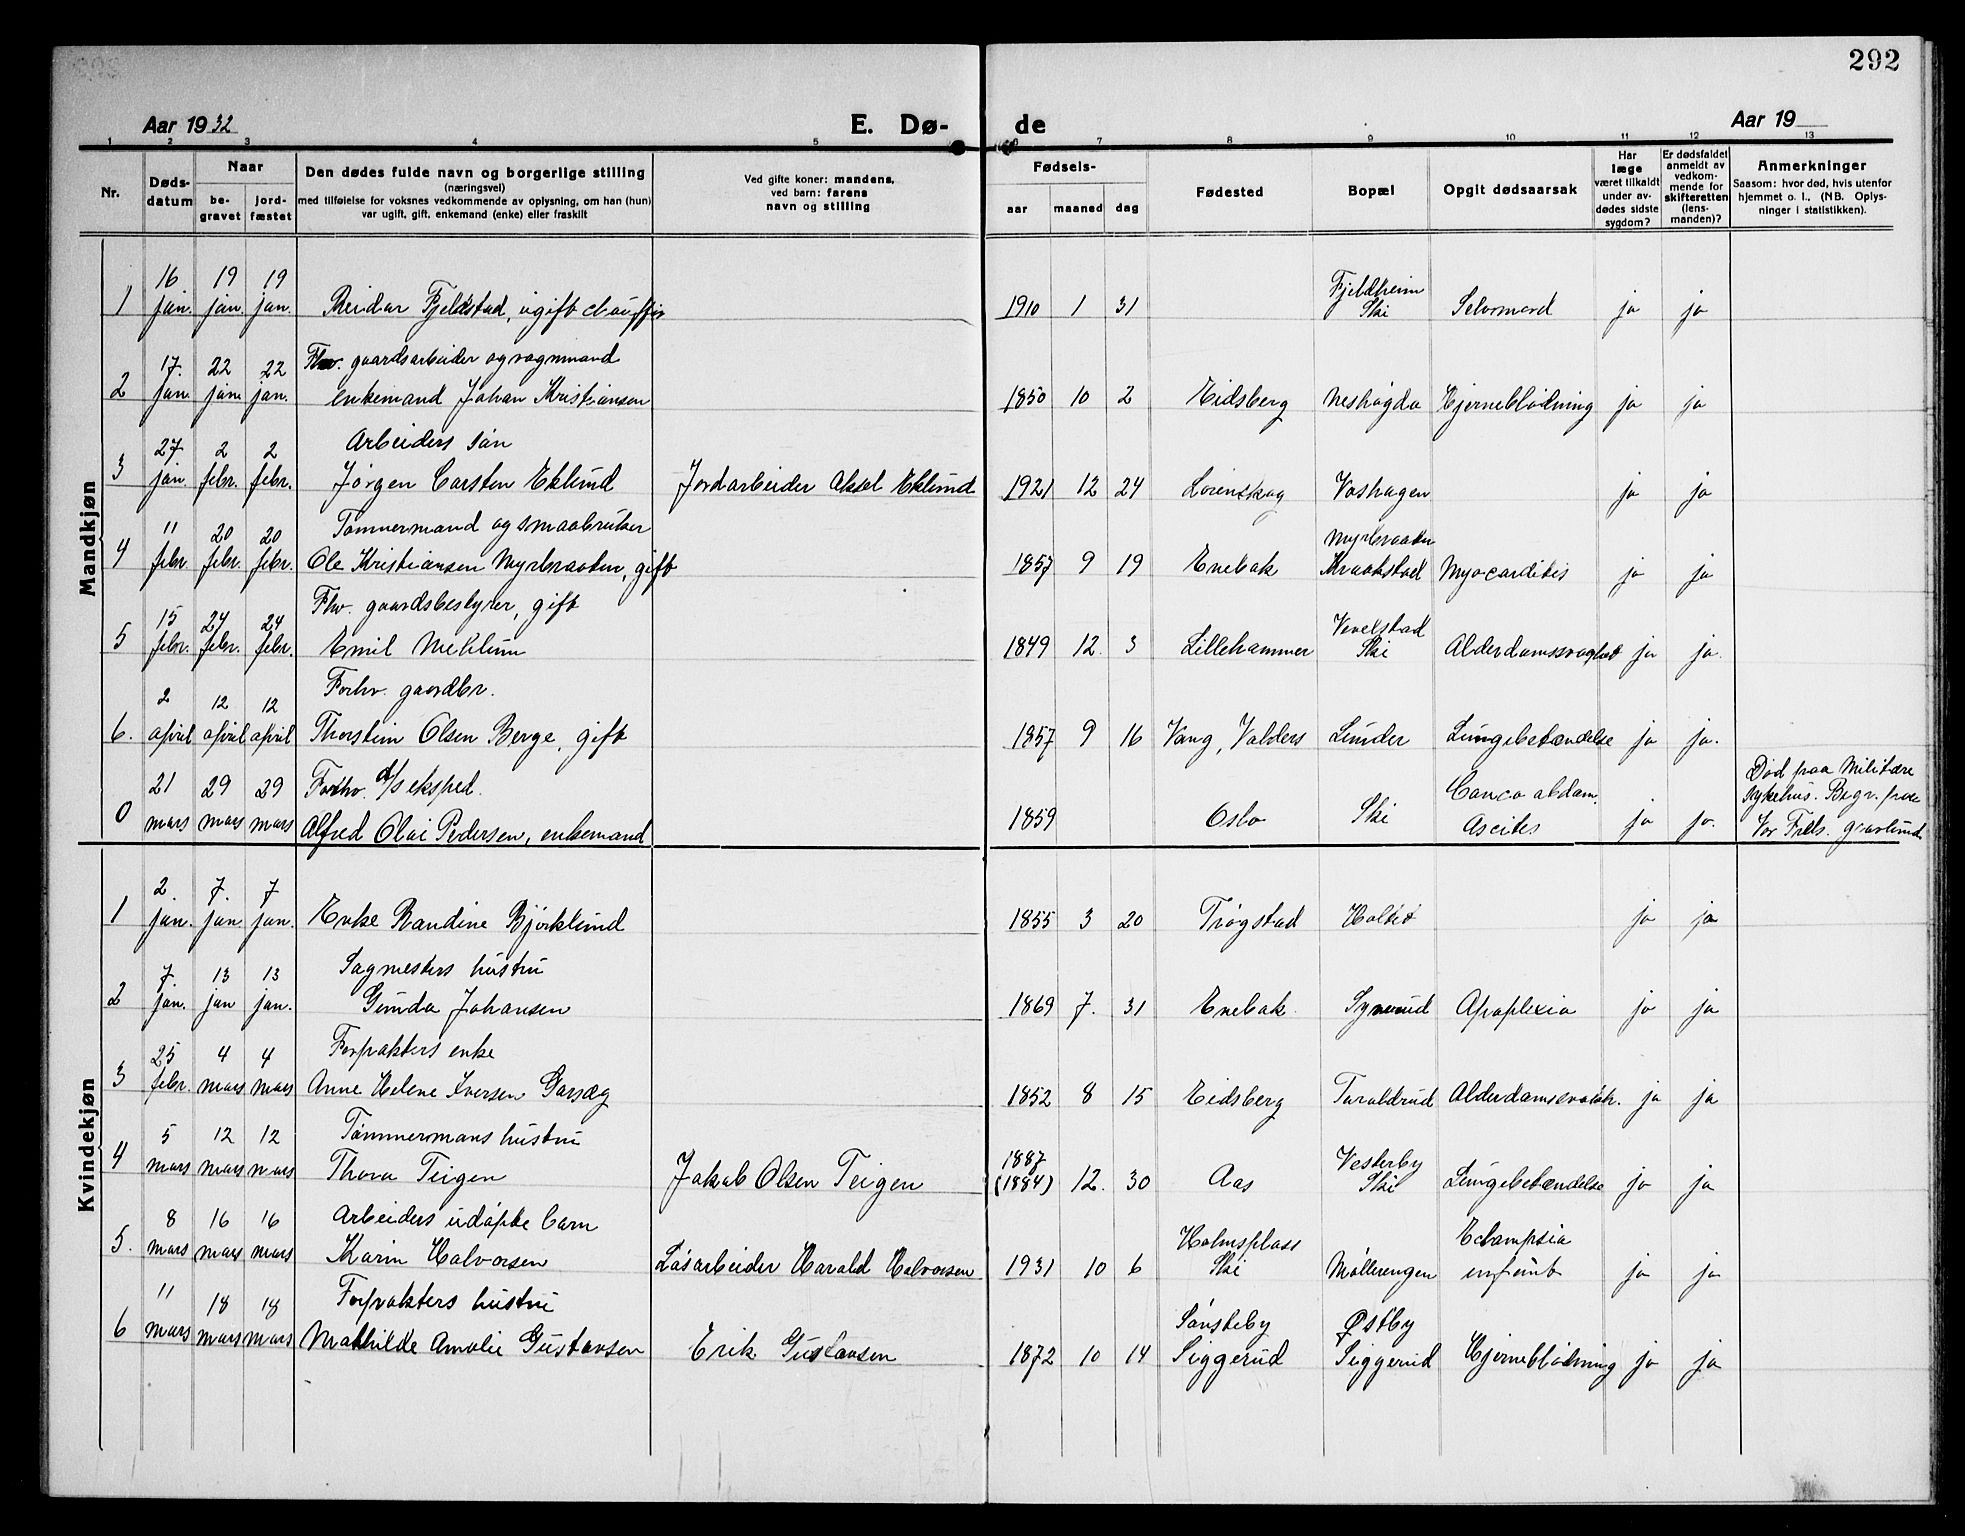 292
Aar 1932 E. Dø- de Aar 19
1 2 3 4 5 6 7 8 9 10 11 12 13
Nr.
Døds-
datum
Naar
be-
gravet
jord-
fæstet
Den dødes fulde navn og borgerlige stilling
(næringsvei)
med tilføielse for voksnes vedkommende av oplysning, om han (hun)
var ugift, gift, enkemand (enke) eller fraskilt
Ved gifte koner: mandens,
ved barn: farens
navn og stilling
Fødsels-
aar maaned dag
Fødested
Bopæl
Opgit dødsaarsak
Har
læge
været tilkaldt
under av-
dødes sidste
sygdom?
Er dødsfaldet
anmeldt av
vedkom-
mende for
skifteretten
(lens-
manden)?
Anmerkninger
Saasom: hvor død, hvis utenfor
hjemmet o. l., (NB. Oplys-
ninger i statistikken).
Mandkjøn
16 19 19 Fjeldheim
1 jan. jan. jan. Reidar Fjeldstad, ugift chauffør 1910 1 31 Ski Selvmord ja ja
17. 22 22 Fhv. gaardsarbeider og vognmand
2 jan. jan. jan. enkemand Johan Kristiansen 1850 10 2 Eidsberg Neshøgda Hjerneblødning ja ja
27 2 2 Arbeiders søn
3 jan. febr. febr. Jørgen Carsten Eklund Jordarbeider Aksel Eklund 1921 12 24 Lørenskog Voshagen ja ja
11 20 20 Tømmermand og smaabruker Myrbraaten
4 febr. febr. febr. Ole Kristiansen Myrbraaten, gift 1857 9 19 Enebak Kraakstad Myocarditis ja ja
15 24 24 Fhv. gaardsbestyrer, gift Vevelstad
5 febr. febr. febr. Emil Meklum 1849 12. 3 Lillehammer Ski Alderdomssvaghet ja ja.
2 12 12 Forhv. gaardbr.
6. april april april Thorstein Olsen Berge, gift 1857 9 16 Vang, Valders Lunder Lungebetændelse ja ja.
21 29 29 Forhv. d/s eksped. Canco abdom. Død paa Militære
0 mars mars mars Alfred Olai Pedersen, enkemand 1859 Oslo Ski Ascites ja ja. sykehus. Begr. fra
Vor Frels. gravlund
Kvindekjøn
2. 7. 7
1 jan. jan jan. Enke Randine Bjørklund 1855 3 20 Trøgstad Holtet ja ja
7. 13 13 Sagmesters hustru
2 jan. jan jan. Gunda Johansen 1869 7. 31 Enebak Apoplexia ja ja
25 4 4 Forpakters enke
3 febr. mars mars Anne Helene Iversen Garsæg 1852 8 15 Eidsberg Taraldrud Alderdomssvakh. ja ja
5 12 12 Tømmermans hustru 1887 Vesterby
4 mars mars mars Thora Teigen Jakob Olsen Teigen (1884) 12. 30 Aas Ski Lungebetændelse ja ja
8 16 16 Arbeiders udøpte barn Holmsplass Eclampsia
5. mars mars mars Karin Halvorsen Løsarbeider Harald Halvorsen 1931 10 6 Ski Møllerengen enfant ja ja
11 18 18 Forpakters hustru Sønsteby Østby
6 mars mars mars Mathilde Amalie Gustavsen Erik Gustavsen 1872 10 14 Siggerud Siggerud Hjerneblødning ja ja